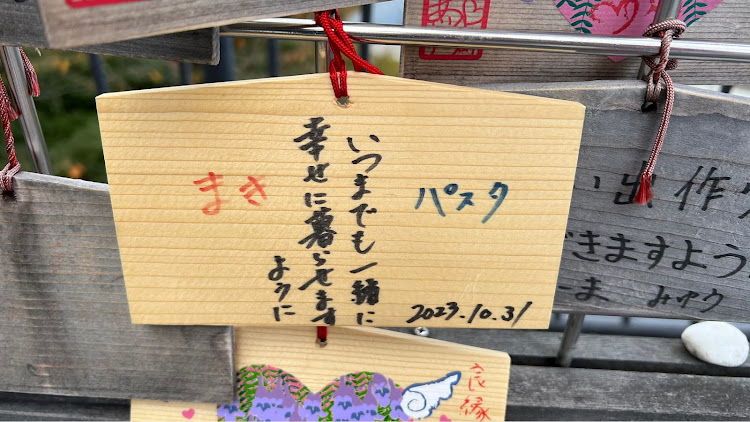 いつまでも一緒に
幸せに暮らせます
ように
パスタ
まき
2023.10.31
出作
できますよう
みゆう
良縁